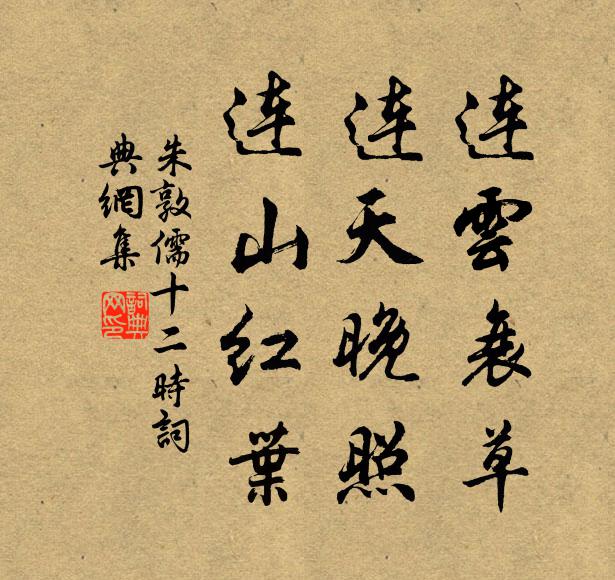 连雲衰草
连天晚照
连山红葉
朱敦儒十二時詞
典網集
詞典
网印